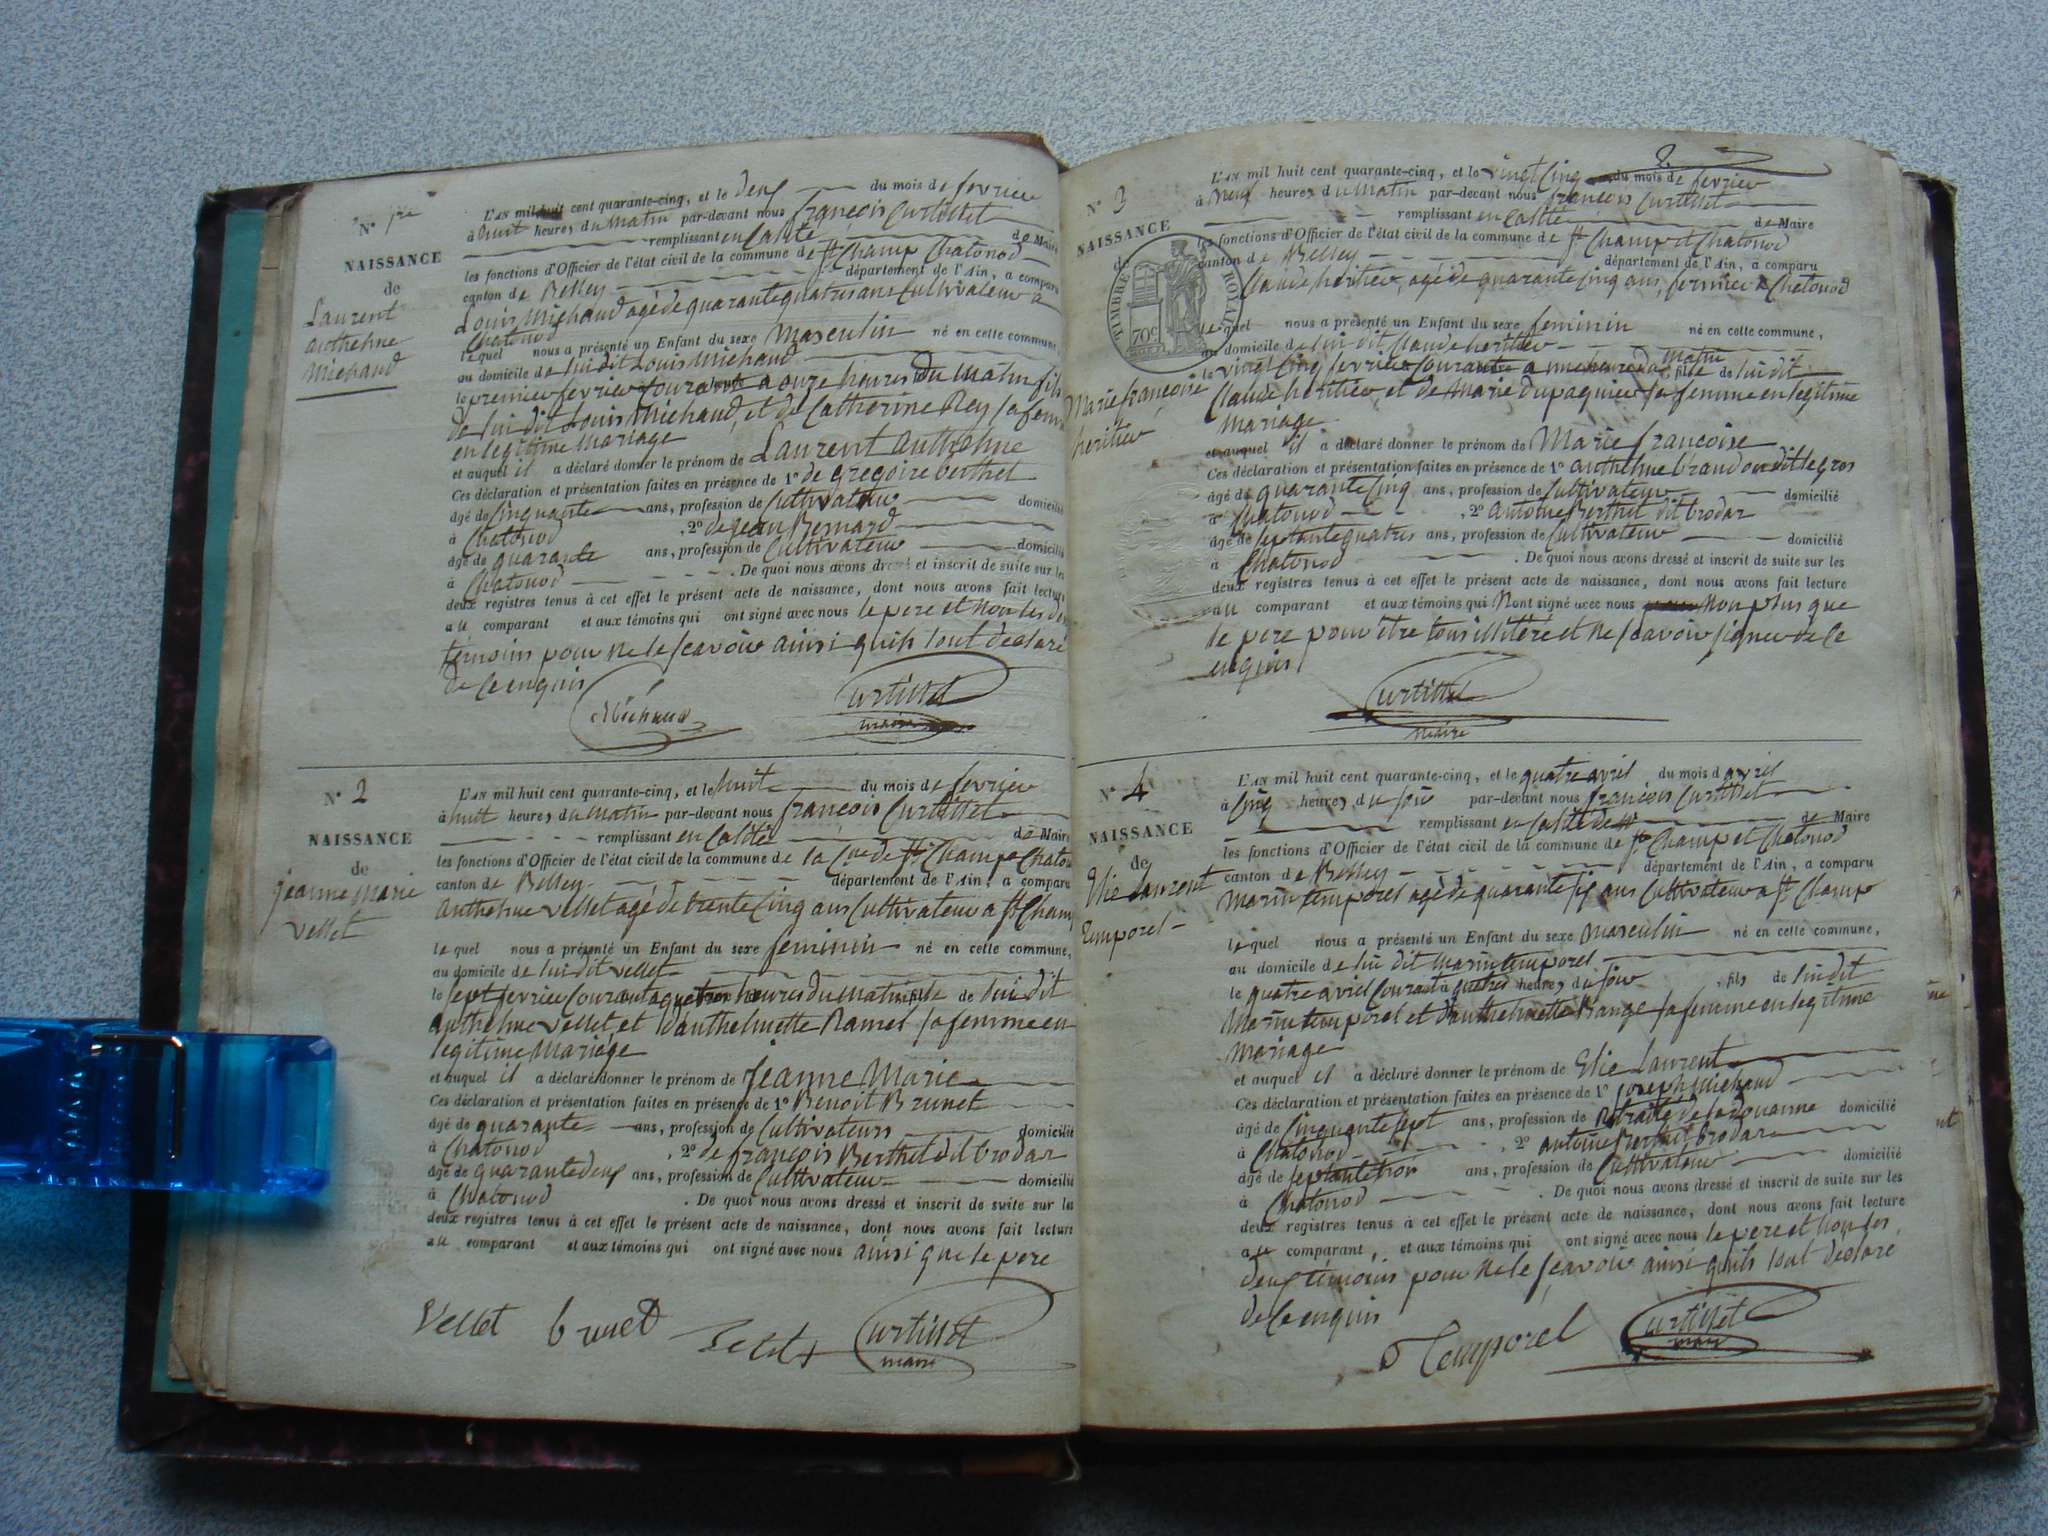 N° 1re
NAISSANCE
de
Laurent
anthelme
Michaud
L'AN mil huit cent quarante-cinq, et le deux du mois de fevrier
à huit heures du matin par-devant nous françois Curtillet
remplissant en Calité de Maire
les fonctions d'Officier de l'état civil de la commune de St Champ Chatonod
canton de Belley département de l'Ain, a comparu
Louis Michaud agé de quarante quatres ans Cultivateur a
Chatonod
lequel nous a présenté un Enfant du sexe masculin né en cette commune,
au domicile de lui dit Louis Michaud
le premier fevrier Courant a onze heures du matin fils
de lui dit Louis Michaud, et de Catherine Rey sa femme
en legitime mariage
et auquel il a déclaré donner le prénom de Laurent anthelme
Ces déclaration et présentation faites en présence de 1° de gregoire berthet
âgé de Cinquante ans, profession de Cultivateur domicilié
à Chatonod , 2° de jean Bernard
âgé de quarante ans, profession de Cultivateur domicilié
à Chatonod . De quoi nous avons dressé et inscrit de suite sur les
deux registres tenus à cet effet le présent acte de naissance, dont nous avons fait lecture
au comparant et aux témoins qui ont signé avec nous le pere et non les deux
temoins pour ne le scavoir ainsi quils lont declaré
de Ce enquis
Michaud Curtillet
maire
N° 2
NAISSANCE
de
jeanne Marie
Vellet
L'AN mil huit cent quarante-cinq, et le huit du mois de fevrier
à huit heures du matin par-devant nous françois Curtillet
remplissant en Calité de Maire
les fonctions d'Officier de l'état civil de la commune de la Cne de St Champ Chatonod
canton de Belley département de l'Ain, a comparu
anthelme Vellet agé de trente Cinq ans Cultivateur a St Champ
lequel nous a présenté un Enfant du sexe feminin né en cette commune,
au domicile de lui dit Vellet
le sept fevrier Courant a quatres heures du matin fille de lui dit
anthelme Vellet, et d'anthelmette Ramel sa femme en
legitime Mariage
et auquel il a déclaré donner le prénom de jeanne Marie
Ces déclaration et présentation faites en présence de 1° Benoit Brunet
âgé de quarante ans, profession de Cultivateurs domicilié
à Chatonod , 2° de françois Berthet dit brodar
âgé de quarante deux ans, profession de Cultivateur domicilié
à Chatonod . De quoi nous avons dressé et inscrit de suite sur les
deux registres tenus à cet effet le présent acte de naissance, dont nous avons fait lecture
au comparant et aux témoins qui ont signé avec nous ainsi que le pere
Vellet brunet Curtillet
maire
2.
N° 3
NAISSANCE
de
TIMBRE ROYAL
70c
Marie françoise
heritier
L'AN mil huit cent quarante-cinq, et le vingt Cinq du mois de fevrier
à neuf heures du matin par-devant nous françois Curtillet
remplissant en Calité de Maire
les fonctions d'Officier de l'état civil de la commune de St Champ et Chatonod
canton de Belley département de l'Ain, a comparu
Claude heritier, agé de quarante Cinq ans, fermier a Chatonod
lequel nous a présenté un Enfant du sexe feminin né en cette commune,
au domicile de lui dit Claude heritier
le vingt Cinq fevrier Courant a une heure du matin fille de lui dit
Claude heritier, et de Marie Dupaquier sa femme en legitime
mariage
et auquel il a déclaré donner le prénom de Marie françoise
Ces déclaration et présentation faites en présence de 1° anthelme brandon dit le gros
âgé de quarante Cinq ans, profession de Cultivateur domicilié
à Chatonod , 2° antoine Berthet dit brodar
âgé de septante quatres ans, profession de Cultivateur domicilié
à Chatonod . De quoi nous avons dressé et inscrit de suite sur les
deux registres tenus à cet effet le présent acte de naissance, dont nous avons fait lecture
au comparant et aux témoins qui Nont signé avec nous non plus que
le pere pour être tous illitère et ne scavoir signer de Ce
enquis
Curtillet
maire
N° 4
NAISSANCE
de
Elie Laurent
temporel
L'AN mil huit cent quarante-cinq, et le quatre avril du mois d avril
à Cinq heures du soir par-devant nous françois Curtillet
remplissant en Calité de Maire
les fonctions d'Officier de l'état civil de la commune de St Champ et Chatonod
canton de Belley département de l'Ain, a comparu
Marin temporel agé de quarante six ans Cultivateur a St Champ
lequel nous a présenté un Enfant du sexe masculin né en cette commune,
au domicile de lui dit Marin temporel
le quatre avril Courant à quatres heures du soir , fils de lui dit
Marin temporel et d'anthelmette Bange sa femme en legitime
mariage
et auquel il a déclaré donner le prénom de Elie Laurent
Ces déclaration et présentation faites en présence de 1° joseph Michaud
âgé de Cinquante sept ans, profession de Retraité de la douanne domicilié
à Chatonod , 2° antoine Berthet brodar
âgé de septante trois ans, profession de Cultivateur domicilié
à Chatonod . De quoi nous avons dressé et inscrit de suite sur les
deux registres tenus à cet effet le présent acte de naissance, dont nous avons fait lecture
au comparant, et aux témoins qui ont signé avec nous le pere et non les
deux témoins pour ne le scavoir ainsi quils lont declaré
de Ce enquis
Temporel Curtillet
maire